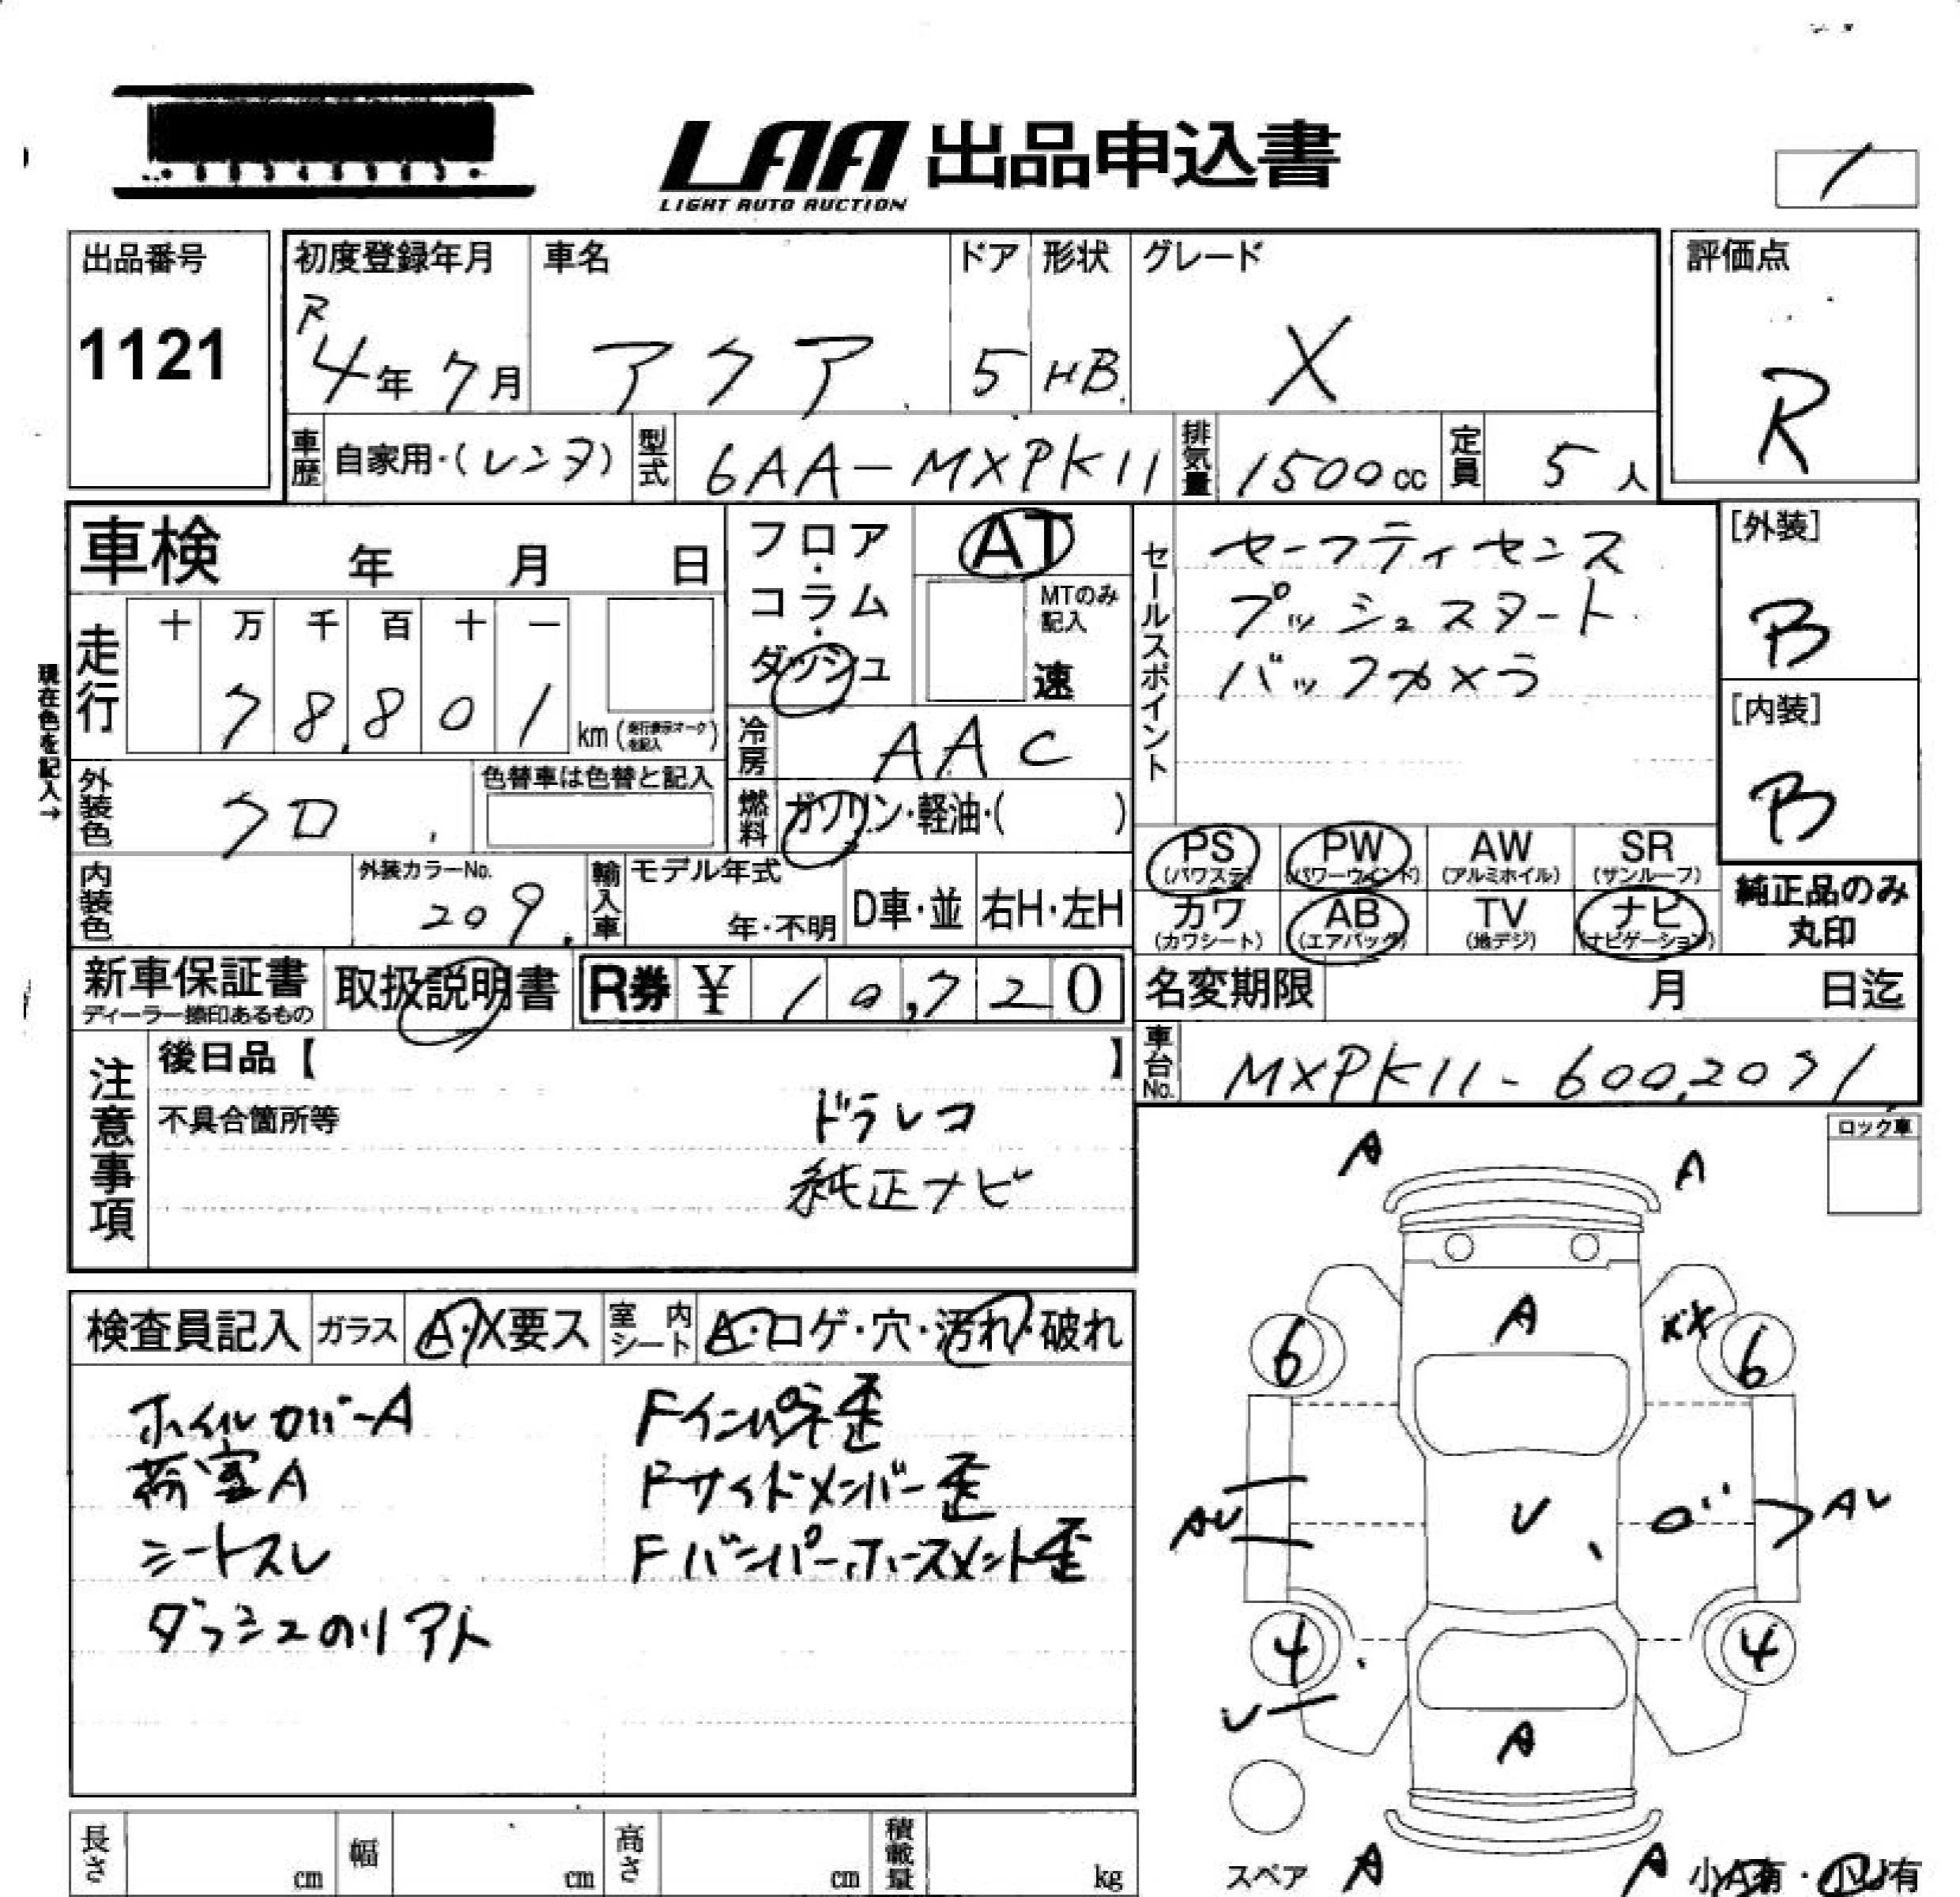 LAA 出品申込書
LIGHT AUTO AUCTION
出品番号
1121
初度登録年月
R
4年 7月
車名
アクア
ドア
5
形状
HB
グレード
X
評価点
R
車歴 自家用・(レンタ)
型式 6AA-MXPK11
排気量 1500cc
定員 5人
車検 年 月 日
現在色を記入→
走行 十 万 千 百 十 一
78,801
km(
を記入)
フロア・コラム・ダッシュ
AT
MTのみ記入
速
冷房 AAC
燃料 ガソリン・軽油・( )
セールスポイント
セーフティセンス
プッシュスタート
バックカメラ
[外装]
B
[内装]
B
外装色 クロ
色替車は色替と記入
内装色
外装カラーNo.
209
輸入車 モデル年式
年・不明
D車・並
右H・左H
PS
(パワステ)
PW
(パワーウインド)
AW
(アルミホイル)
SR
(サンルーフ)
カワ
(カワシート)
AB
(エアバッグ)
TV
(地デジ)
ナビ
(ナビゲーション)
純正品のみ
丸印
新車保証書
ディーラー捺印あるもの
取扱説明書
R券 ¥ 10,720
名変期限 月 日迄
車台No. MXPK11-6002031
注意事項
後日品【 】
不具合箇所等
ドラレコ
純正ナビ
ロック車
検査員記入
ガラス A・X要ス
室内シート A・コゲ・穴・汚れ・破れ
ホイルカバーA
荷室A
シートスレ
ダッシュのリアト
Fインパネ歪
Fサイドメンバー歪
Fバンパーホースメント歪
A A
A
XX
6 6
AU
U
AU
4 4
U
A
A A
スペア
小A有・小U有
長さ cm
幅 cm
高さ cm
積載量 kg